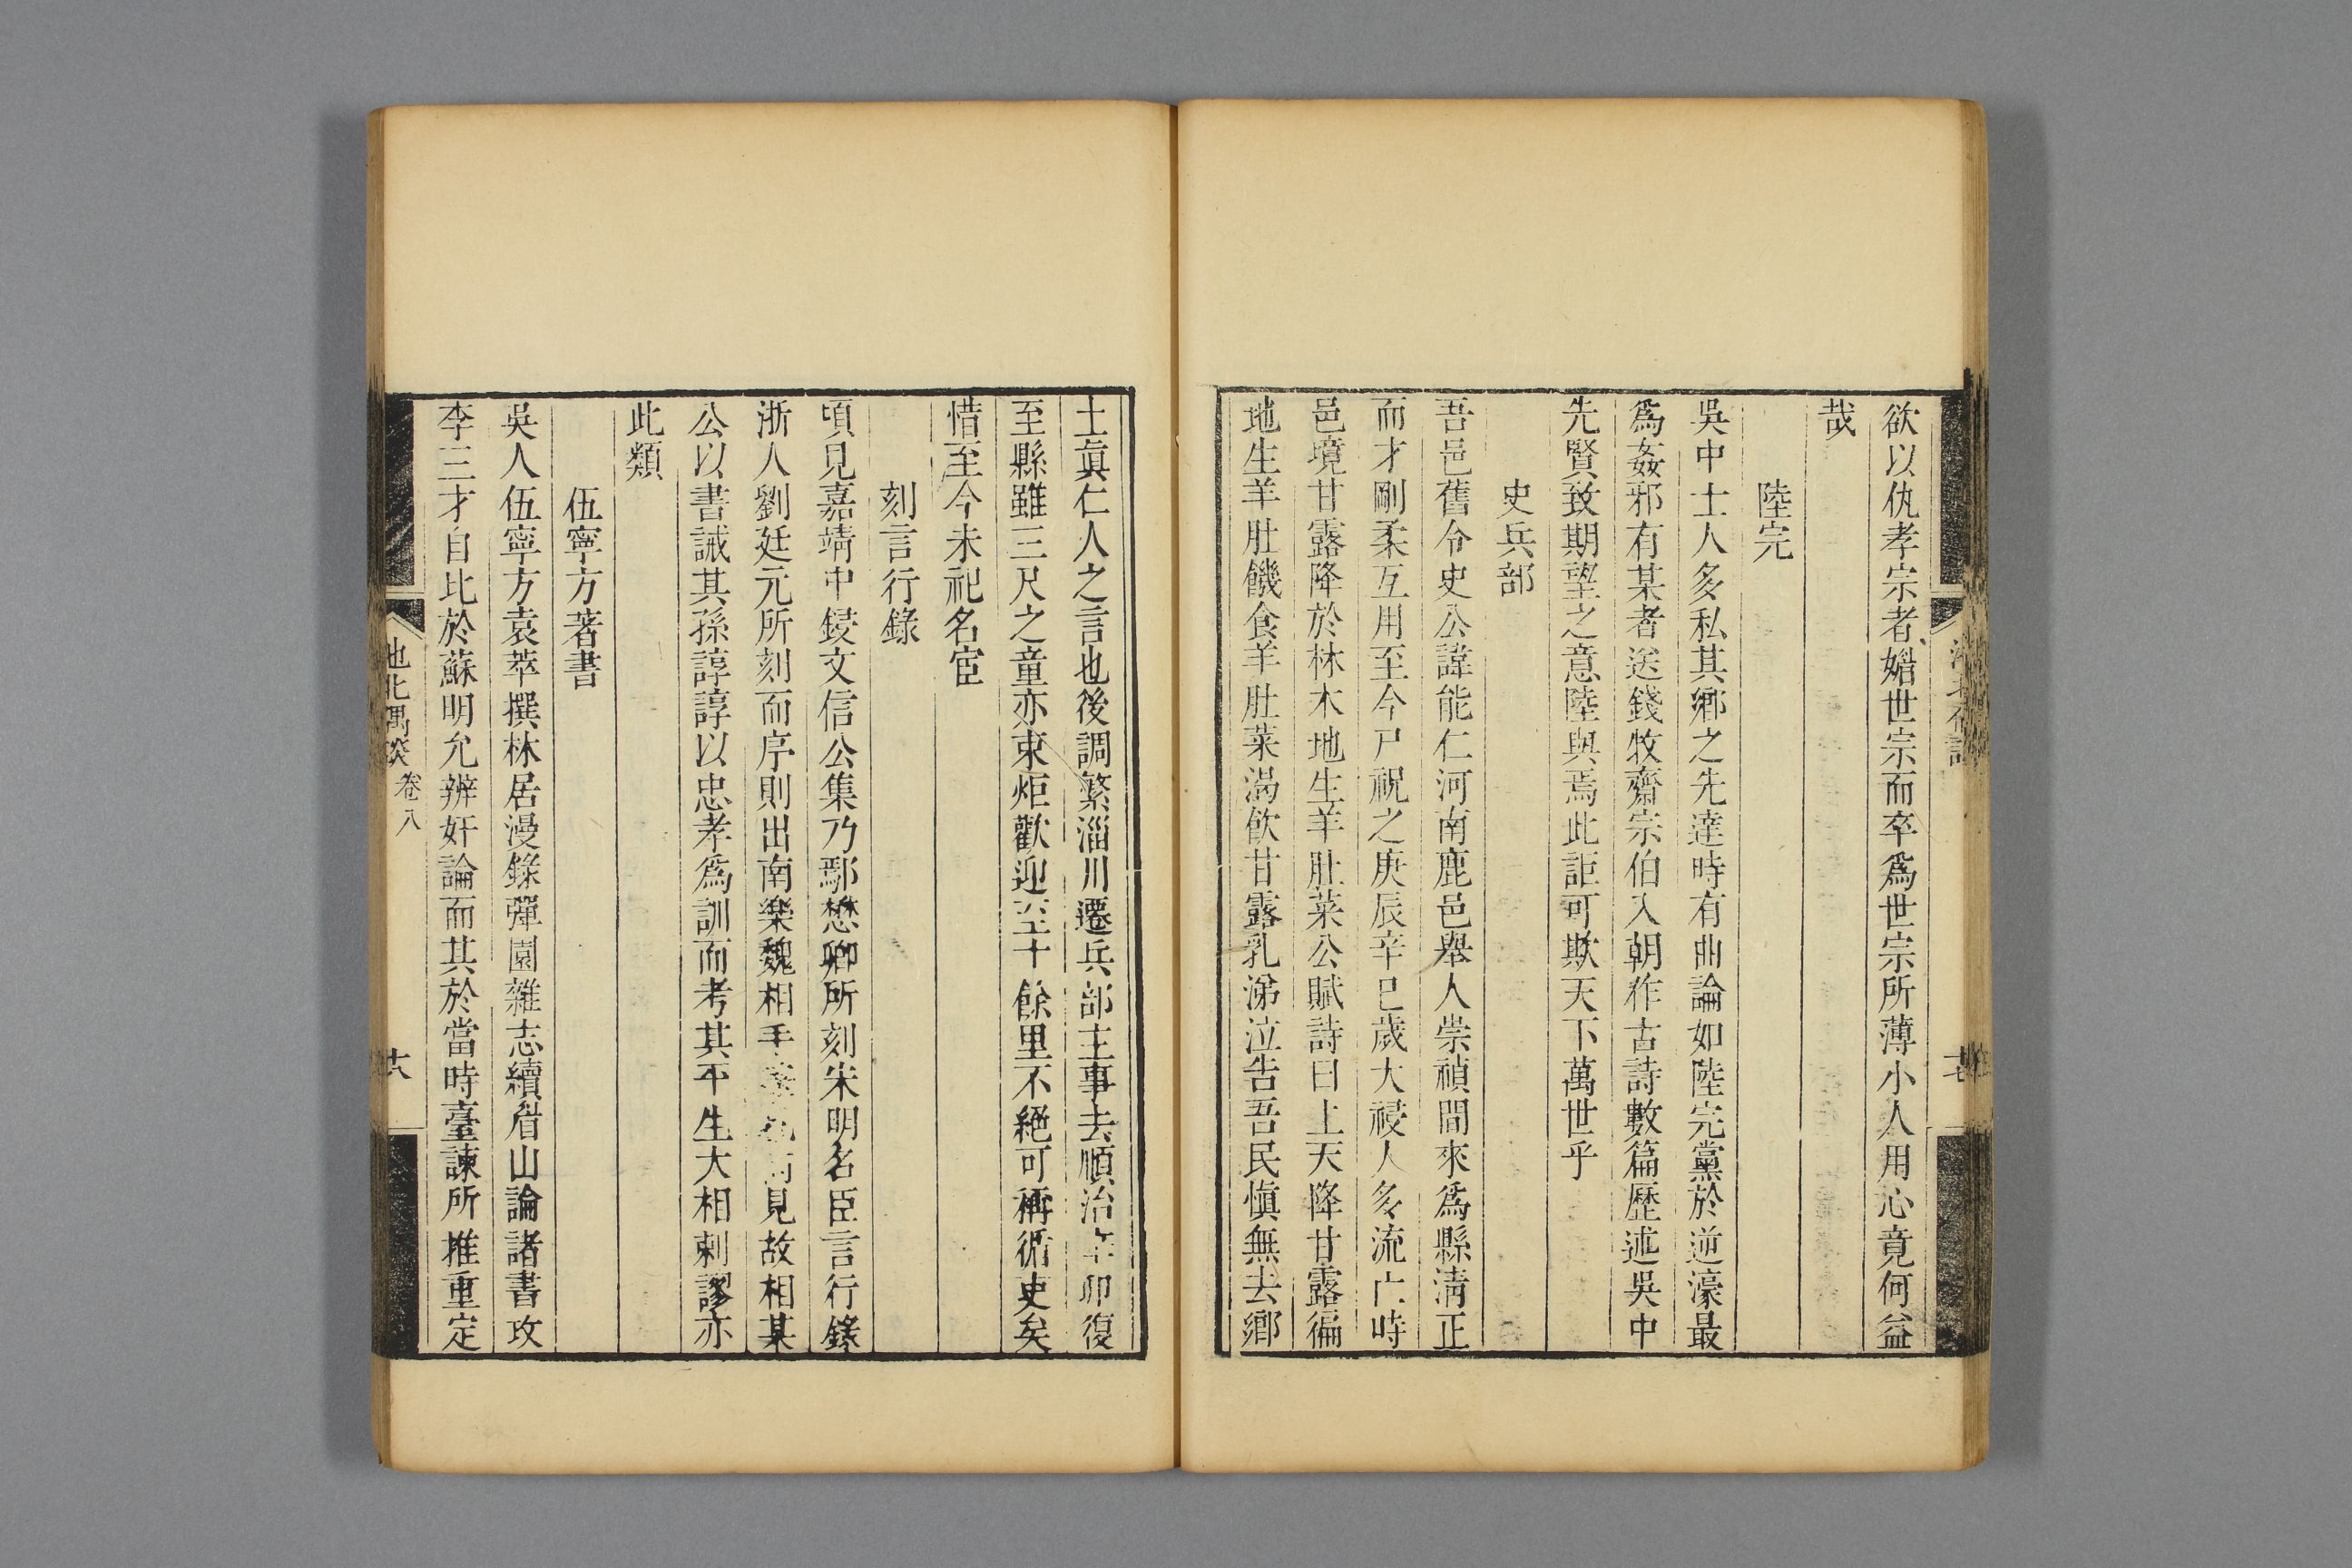 欲以仇孝宗者媚世宗而卒爲世宗所薄小人用心竟何益
哉
陸完
吳中士人多私其鄉之先達時有曲論如陸完黨於逆濠最
爲姦邪有某者送錢牧齋宗伯入朝作古詩數篇歷述吳中
先賢致期望之意陸與焉此詎可欺天下萬世乎
史兵部
吾邑舊令史公諱能仁河南鹿邑舉人崇禎間來爲縣淸正
而才剛柔互用至今尸祝之庚辰辛巳歲大祲人多流亡時
邑境甘露降於林木地生羊肚菜公賦詩曰上天降甘露徧
地生羊肚饑食羊肚菜渴飲甘露乳涕泣告吾民愼無去鄉
土眞仁人之言也後調繁淄川遷兵部主事去順治辛卯復
至縣雖三尺之童亦束炬歡迎至十餘里不絕可稱循吏矣
惜至今未祀名宦
刻言行錄
頃見嘉靖中鋟文信公集乃鄢懋卿所刻宋明名臣言行錄
浙人劉廷元所刻而序則出南樂魏相手見故相某
公以書誡其孫諄諄以忠孝爲訓而考其平生大相剌謬亦
此類
伍寧方著書
吳人伍寧方袁萃撰林居漫錄彈園雜志續眉山論諸書攻
李三才自比於蘇明允辨奸論而其於當時臺諫所推重定
池北偶談 卷八 十八